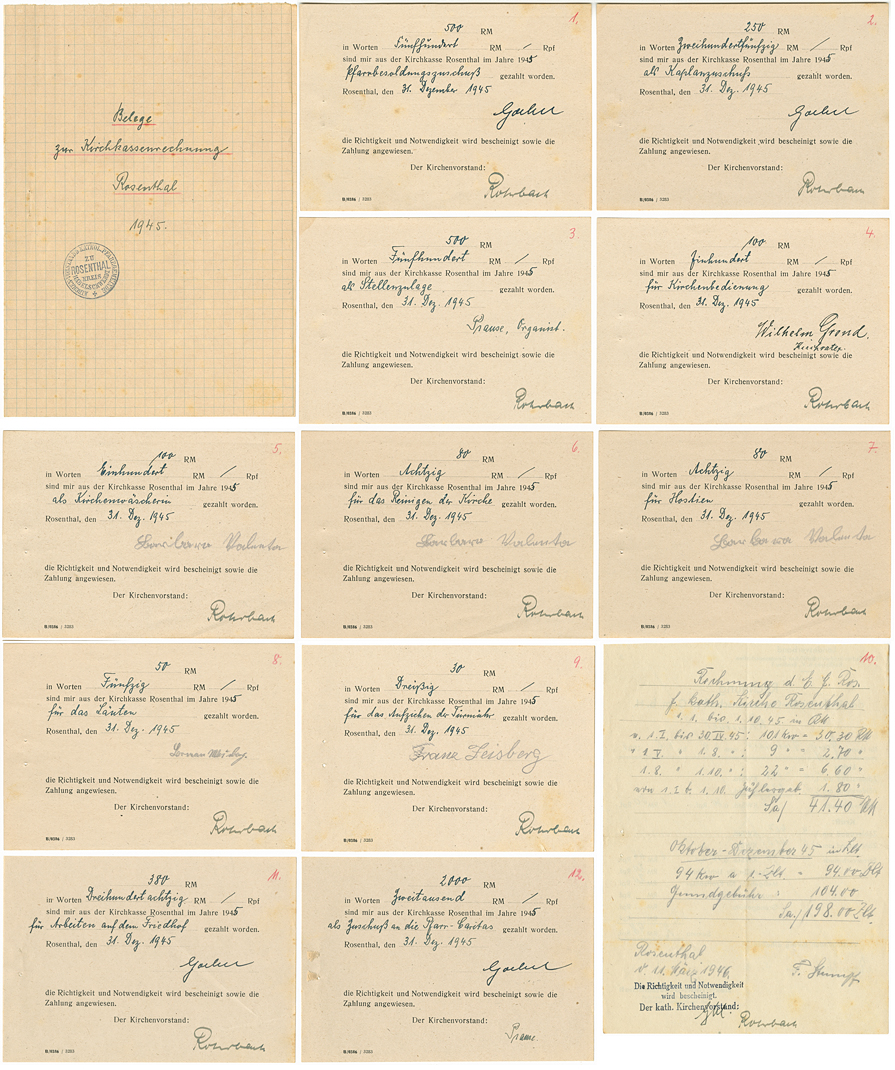 Belege
zur Kirchkassenrechnung
Rosenthal
1945.
ZU
ROSENTHAL
1.
500 RM
in Worten Fünfhundert RM / Rpf
sind mir aus der Kirchkasse Rosenthal im Jahre 1945
Pfarrbesoldungszuschuß gezahlt worden.
Rosenthal, den 31. Dezember 1945
Goebel
die Richtigkeit und Notwendigkeit wird bescheinigt sowie die
Zahlung angewiesen.
Der Kirchenvorstand:
Rohrbach
B/0586 / 5253
2.
250 RM
in Worten Zweihundertfünfzig RM / Rpf
sind mir aus der Kirchkasse Rosenthal im Jahre 1945
als Kaplanzuschuß gezahlt worden.
Rosenthal, den 31. Dez. 1945
Goebel
die Richtigkeit und Notwendigkeit wird bescheinigt sowie die
Zahlung angewiesen.
Der Kirchenvorstand:
Rohrbach
B/0586 / 5253
3.
500 RM
in Worten Fünfhundert RM / Rpf
sind mir aus der Kirchkasse Rosenthal im Jahre 1945
als Stellenzulage gezahlt worden.
Rosenthal, den 31. Dez. 1945
Prause, Organist.
die Richtigkeit und Notwendigkeit wird bescheinigt sowie die
Zahlung angewiesen.
Der Kirchenvorstand:
Rohrbach
B/0586 / 5253
4.
100 RM
in Worten Einhundert RM / Rpf
sind mir aus der Kirchkasse Rosenthal im Jahre 1945
für Kirchenbedienung gezahlt worden.
Rosenthal, den 31. Dez. 1945
Wilhelm Grond.
die Richtigkeit und Notwendigkeit wird bescheinigt sowie die
Zahlung angewiesen.
Der Kirchenvorstand:
Rohrbach
B/0586 / 5253
5.
100 RM
in Worten Einhundert RM / Rpf
sind mir aus der Kirchkasse Rosenthal im Jahre 1945
als Kirchenwäscherin gezahlt worden.
Rosenthal, den 31. Dez. 1945
Barbara Valenta
die Richtigkeit und Notwendigkeit wird bescheinigt sowie die
Zahlung angewiesen.
Der Kirchenvorstand:
Rohrbach
B/0586 / 5253
6.
80 RM
in Worten Achtzig RM / Rpf
sind mir aus der Kirchkasse Rosenthal im Jahre 1945
für das Reinigen der Kirche gezahlt worden.
Rosenthal, den 31. Dez. 1945
Barbara Valenta
die Richtigkeit und Notwendigkeit wird bescheinigt sowie die
Zahlung angewiesen.
Der Kirchenvorstand:
Rohrbach
B/0586 / 5253
7.
80 RM
in Worten Achtzig RM / Rpf
sind mir aus der Kirchkasse Rosenthal im Jahre 1945
für Hostien gezahlt worden.
Rosenthal, den 31. Dez. 1945
Barbara Valenta
die Richtigkeit und Notwendigkeit wird bescheinigt sowie die
Zahlung angewiesen.
Der Kirchenvorstand:
Rohrbach
B/0586 / 5253
8.
50 RM
in Worten Fünfzig RM / Rpf
sind mir aus der Kirchkasse Rosenthal im Jahre 1945
für das Läuten gezahlt worden.
Rosenthal, den 31. Dez. 1945
die Richtigkeit und Notwendigkeit wird bescheinigt sowie die
Zahlung angewiesen.
Der Kirchenvorstand:
Rohrbach
B/0586 / 5253
9.
30 RM
in Worten Dreißig RM / Rpf
sind mir aus der Kirchkasse Rosenthal im Jahre 1945
für das Aufziehen der Turmuhr gezahlt worden.
Rosenthal, den 31. Dez. 1945
Franz Zeisberg
die Richtigkeit und Notwendigkeit wird bescheinigt sowie die
Zahlung angewiesen.
Der Kirchenvorstand:
Rohrbach
B/0586 / 5253
10.
Rechnung d. E. G. Ros.
f. kath. Kirche Rosenthal
v. 1. bis 1. 10. 45 in RM
v. 1. I. bis 30. IV. 45: 101 kw = 30,30 RM
" 1. V. " 1. 8. " : 9 " = 2.70 "
1. 8. " 1. 10. " : 22 " = 6.60 "
von 1. I. b. 1. 10. Zählergeb. 1.80 "
Sa/ 41.40 RM
Oktober-Dezember 45 in Zlt.
94 kw a 1.- Zlt. = 94.00 Zlt.
Grundgebühr : 104.00
Sa/ 198.00 Zlt.
Rosenthal
d. 11. März 1946
F. Stumpf
Die Richtigkeit und Notwendigkeit
wird bescheinigt.
Der kath. Kirchenvorstand:
Rohrbach
11.
380 RM
in Worten Dreihundertachtzig RM / Rpf
sind mir aus der Kirchkasse Rosenthal im Jahre 1945
für Arbeiten auf dem Friedhof gezahlt worden.
Rosenthal, den 31. Dez. 1945
Goebel
die Richtigkeit und Notwendigkeit wird bescheinigt sowie die
Zahlung angewiesen.
Der Kirchenvorstand:
Rohrbach
B/0586 / 5253
12.
2000 RM
in Worten Zweitausend RM / Rpf
sind mir aus der Kirchkasse Rosenthal im Jahre 1945
als Zuschuß an die Pfarr-Caritas gezahlt worden.
Rosenthal, den 31. Dez. 1945
Goebel
die Richtigkeit und Notwendigkeit wird bescheinigt sowie die
Zahlung angewiesen.
Der Kirchenvorstand:
Prause
B/0586 / 5253